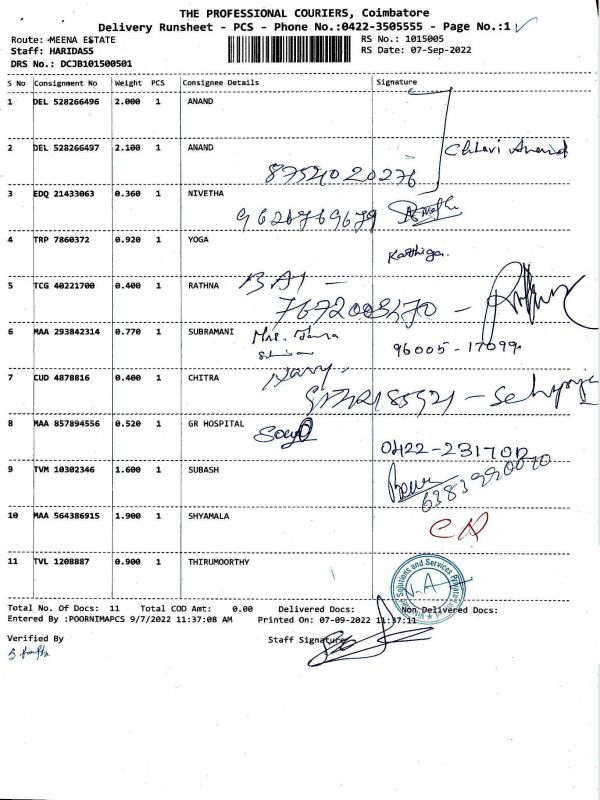 THE PROFESSIONAL COURIERS, Coimbatore
Delivery Runsheet - PCS - Phone No.:0422-3505555 - Page No.:1
Route: MEENA ESTATE RS No.: 1015005
Staff: HARIDASS RS Date: 07-Sep-2022
DRS No.: DCJB101500501
S No Consignment No Weight PCS Consignee Details Signature
1 DEL 528266496 2.000 1 ANAND
2 DEL 528266497 2.100 1 ANAND
Anand
8754020276
3 EDQ 21433063 0.360 1 NIVETHA
4 TRP 7860372 0.920 1 YOGA
Karthiga.
5 TCG 40221700 0.400 1 RATHNA
6 MAA 293842314 0.770 1 SUBRAMANI
96005-17099
7 CUD 4878816 0.400 1 CHITRA
8 MAA 857894556 0.520 1 GR HOSPITAL
9 TVM 10302346 1.600 1 SUBASH
10 MAA 564386915 1.900 1 SHYAMALA
11 TVL 1208887 0.900 1 THIRUMOORTHY
Solutions and Services Private
N.A
Total No. Of Docs: 11 Total COD Amt: 0.00 Delivered Docs: Non Delivered Docs:
Entered By :POORNIMAPCS 9/7/2022 11:37:08 AM Printed On: 07-09-2022 11:37:11
Verified By Staff Signature